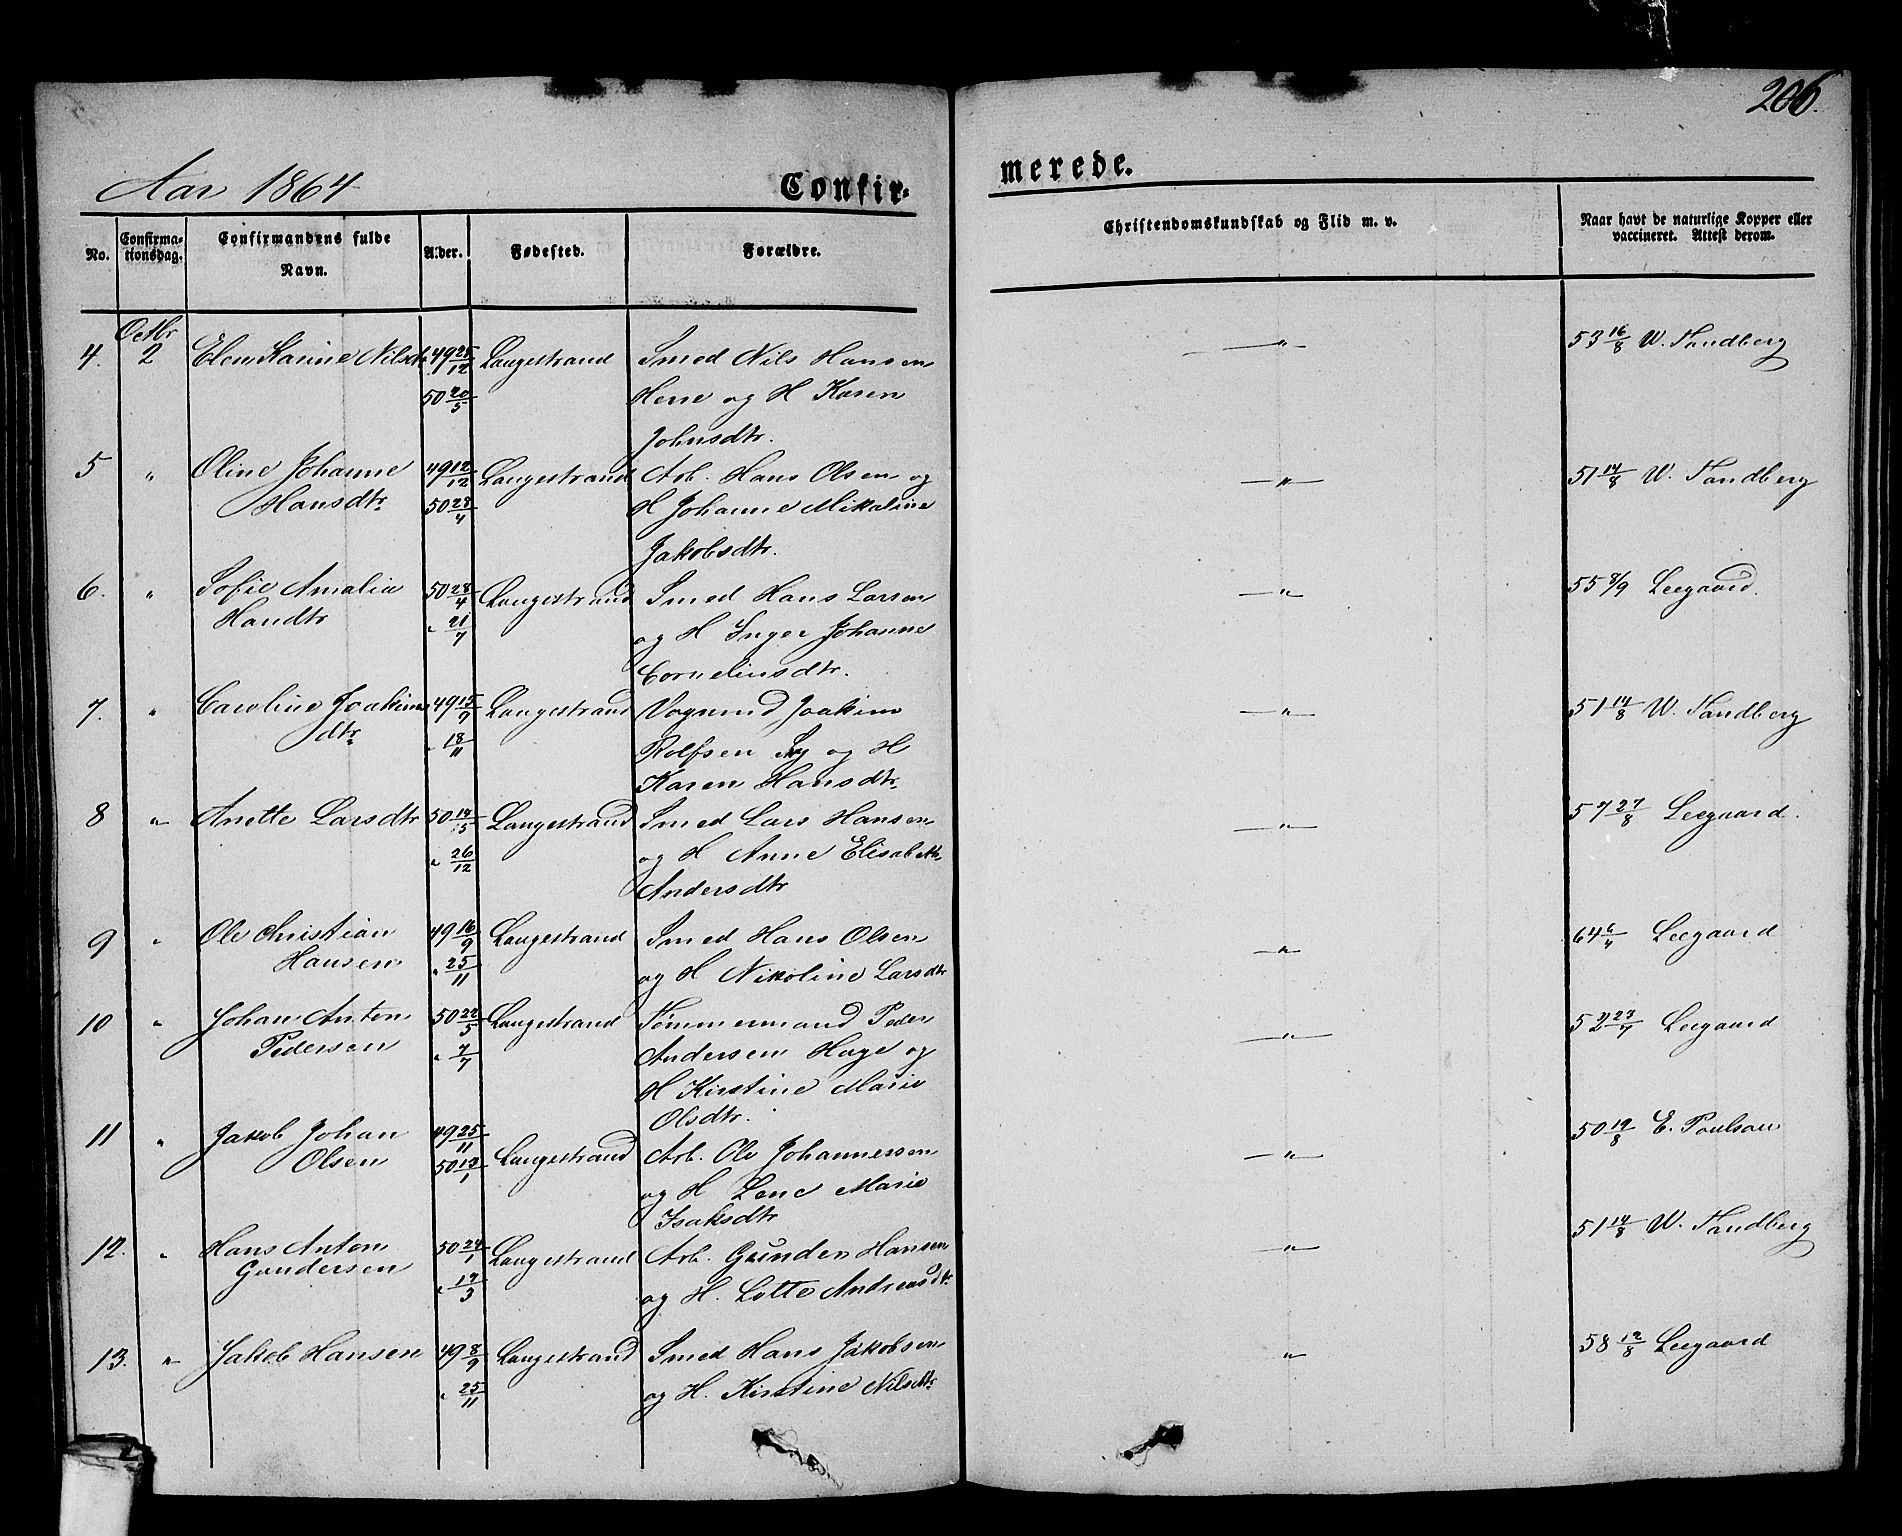 206.
Aar 1864 Confir- merede.
No. Confirma-tionsdag. Confirmandens fulde Navn. Alder. Fødested. Forældre. Christendomskundskab og Flid m. v. Naar havt de naturlige Kopper eller vaccineret. Attest derom.
Octbr
4. 2 Elen Stanine Nilsdtr 49 25/12 Langestrand Smed Nils Hansen — " — 53 16/8 W. Sandberg
50 20/5 Herre og H Karen
Johnsdtr.
5 " Oline Johanne 49 12/12 Langestrand Arb. Hans Olsen og — " — 51 14/8 W. Sandberg
Hansdtr 50 28/4 H Johanne Mikaline
Jakobsdtr.
6. " Sofie Amalia 50 28/4 Langestrand Smed Hans Larsen — " — 55 8/9 Leegaard.
Handtr " 21/7 og H Inger Johanne
Corneliusdtr.
7. " Caroline Joakims 49 15/9 Langestrand Vognmd Joakim — " — 51 14/8 W. Sandberg
dtr " 18/11 Rolfsen Sky og H
Karen Hansdtr.
8 " Anette Larsdtr 50 14/5 Langestrand Smed Lars Hansen — " — 57 27/8 Leegaard.
" 26/12 og H Anne Elisabeth
Andersdtr
9 " Ole Christian 49 16/9 Langestrand Smed Hans Olsen — " — 64 6/4 Leegaard
Hansen " 25/11 og H Nikoline Larsdtr
10 " Johan Anton 50 22/5 Langestrand Tømmermand Peder — " — 52 23/7 Leegaard
Pedersen " 7/7 Andersen Hage og
H Kirstine Marie
Olsdtr.
11 " Jakob Johan 49 25/11 Langestrand Arb. Ole Johannessen — " — 50 19/8 E. Poulson
Olsen 50 13/1 og H Lene Marie
Isaksdtr
12. " Hans Anton 50 24/1 Langestrand Arb. Gunder Hansen — " — 51 14/8 W. Sandberg
Gundersen " 17/3 og H. Lotte Andreasdtr.
13. " Jakob Hansen 49 8/9 Langestrand Smed Hans Jakobsen " 58 12/8 Leegaard
" 25/11 og H. Kirstine Nilsdtr